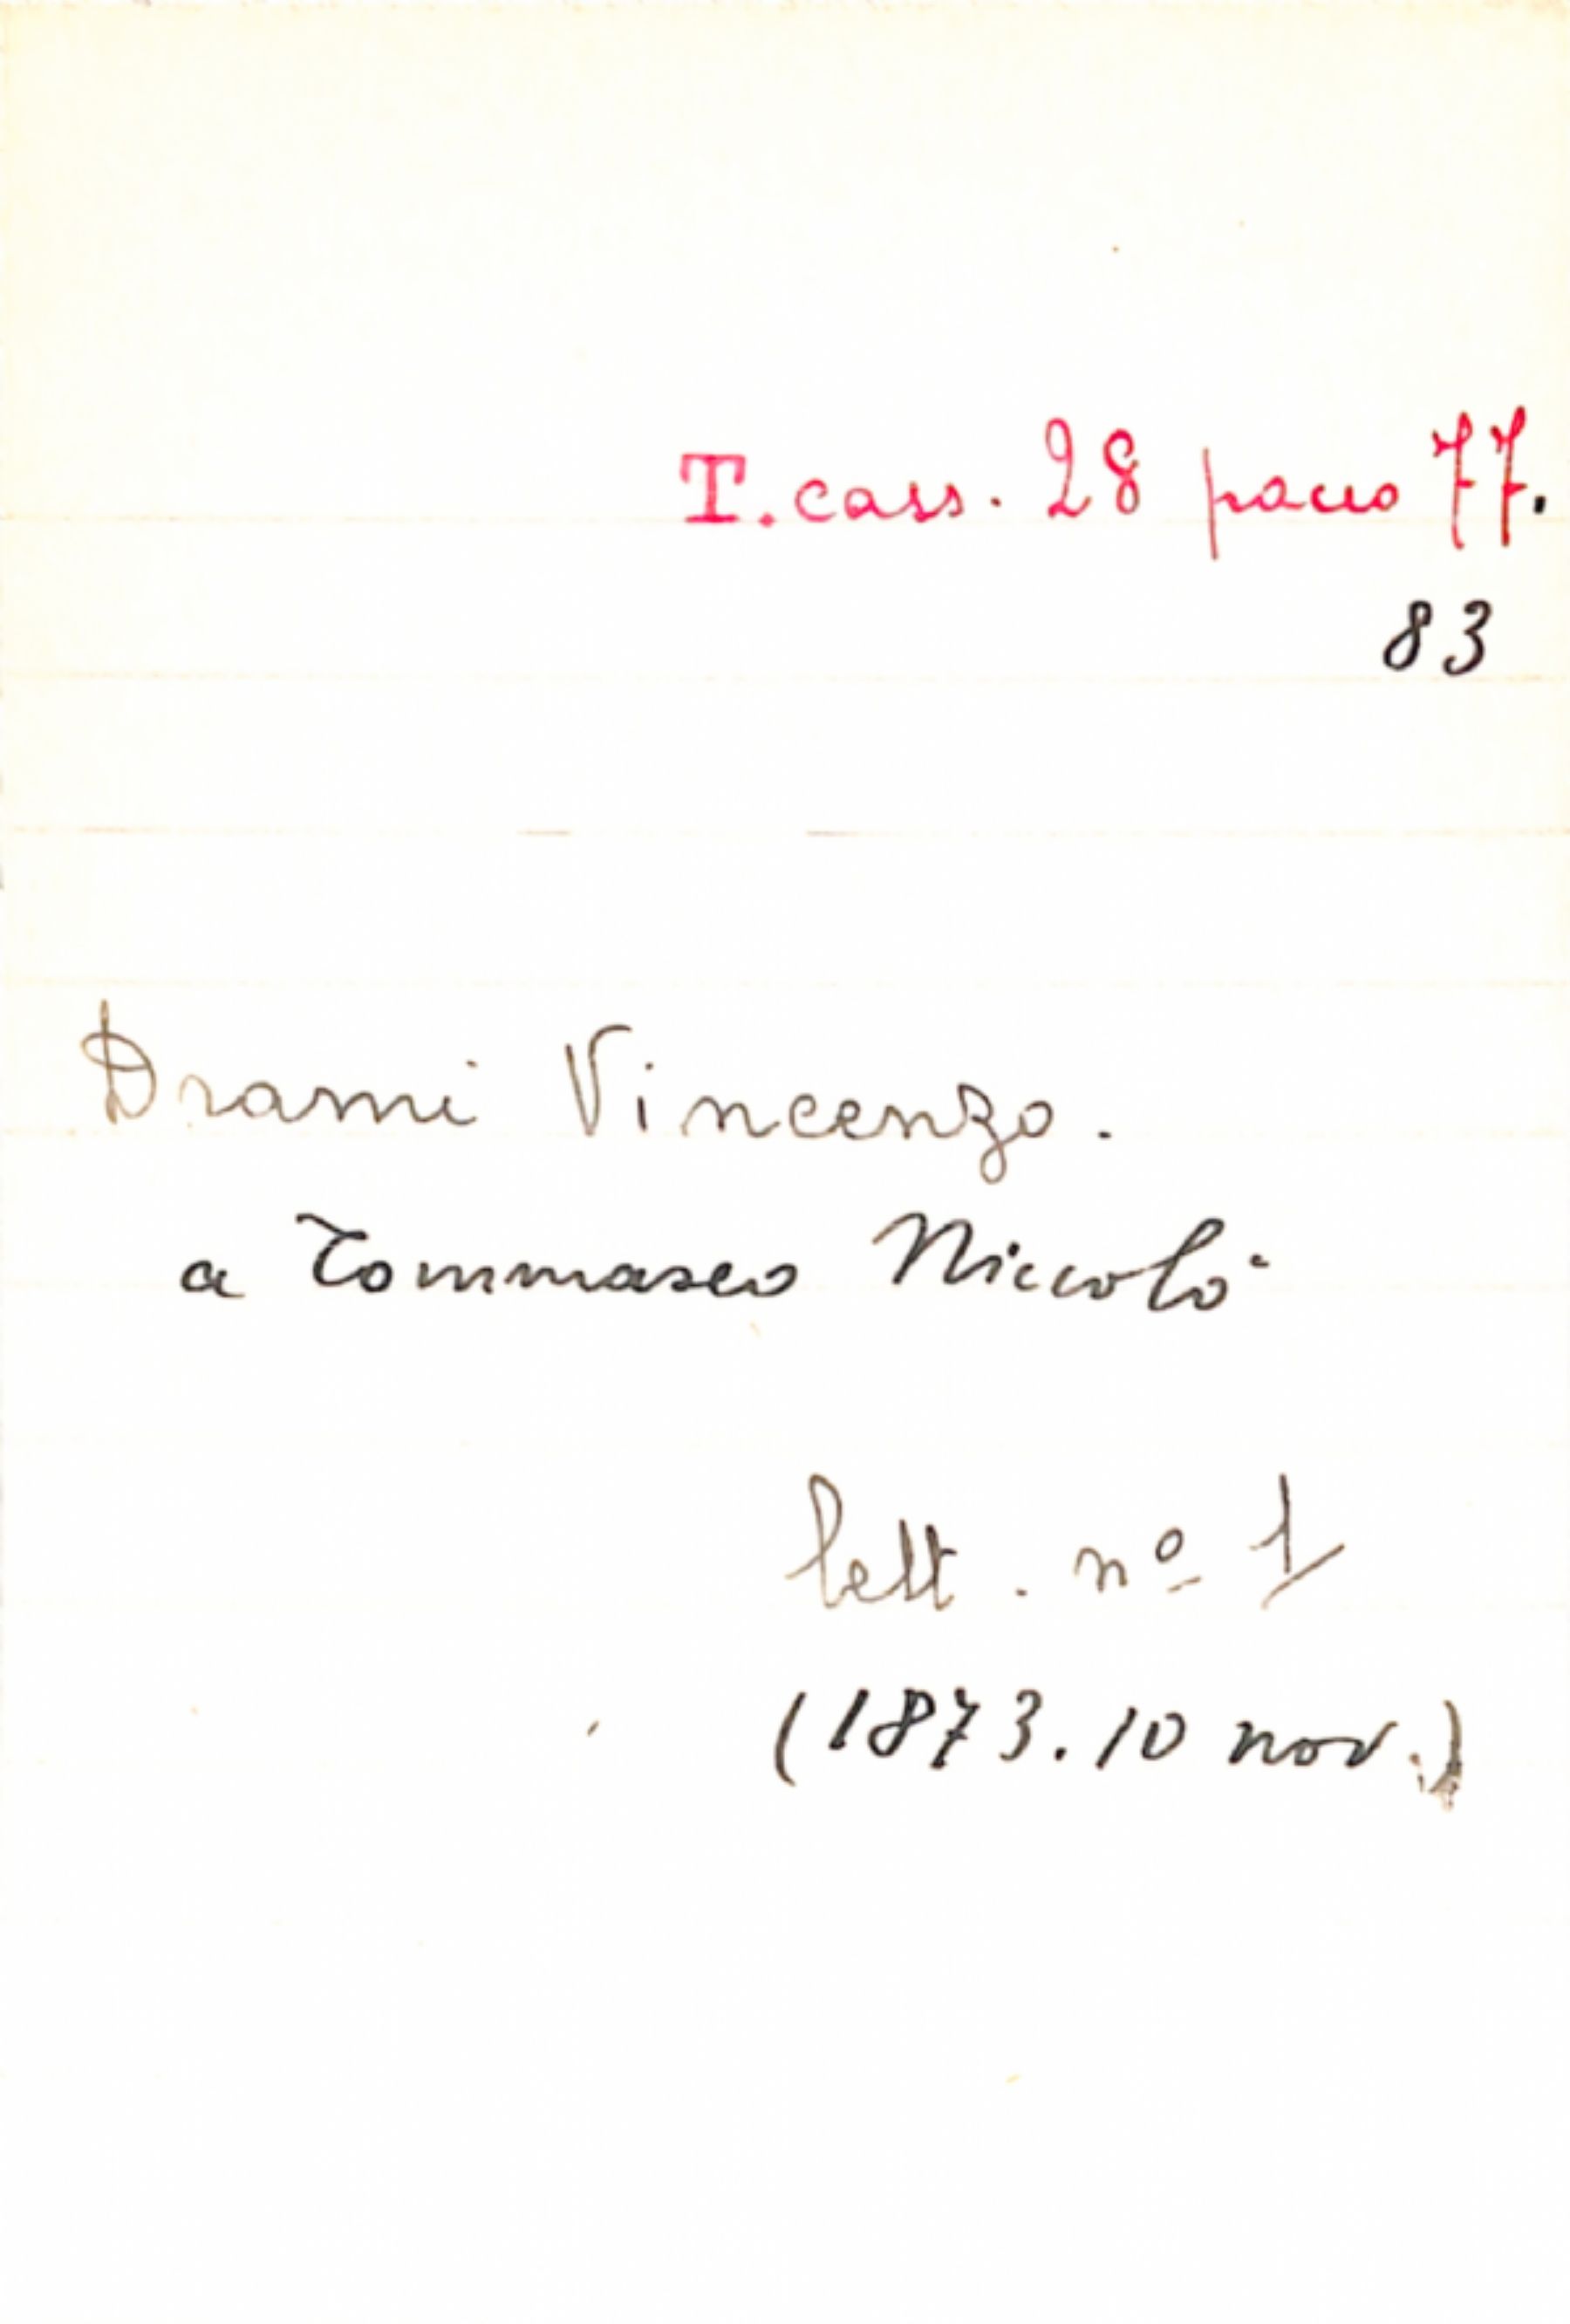 T. cass. 28 pacco 77.
83
Drami Vincenzo.
a Tommaseo Niccolò
lett. nº 1
(1873. 10 nov.)